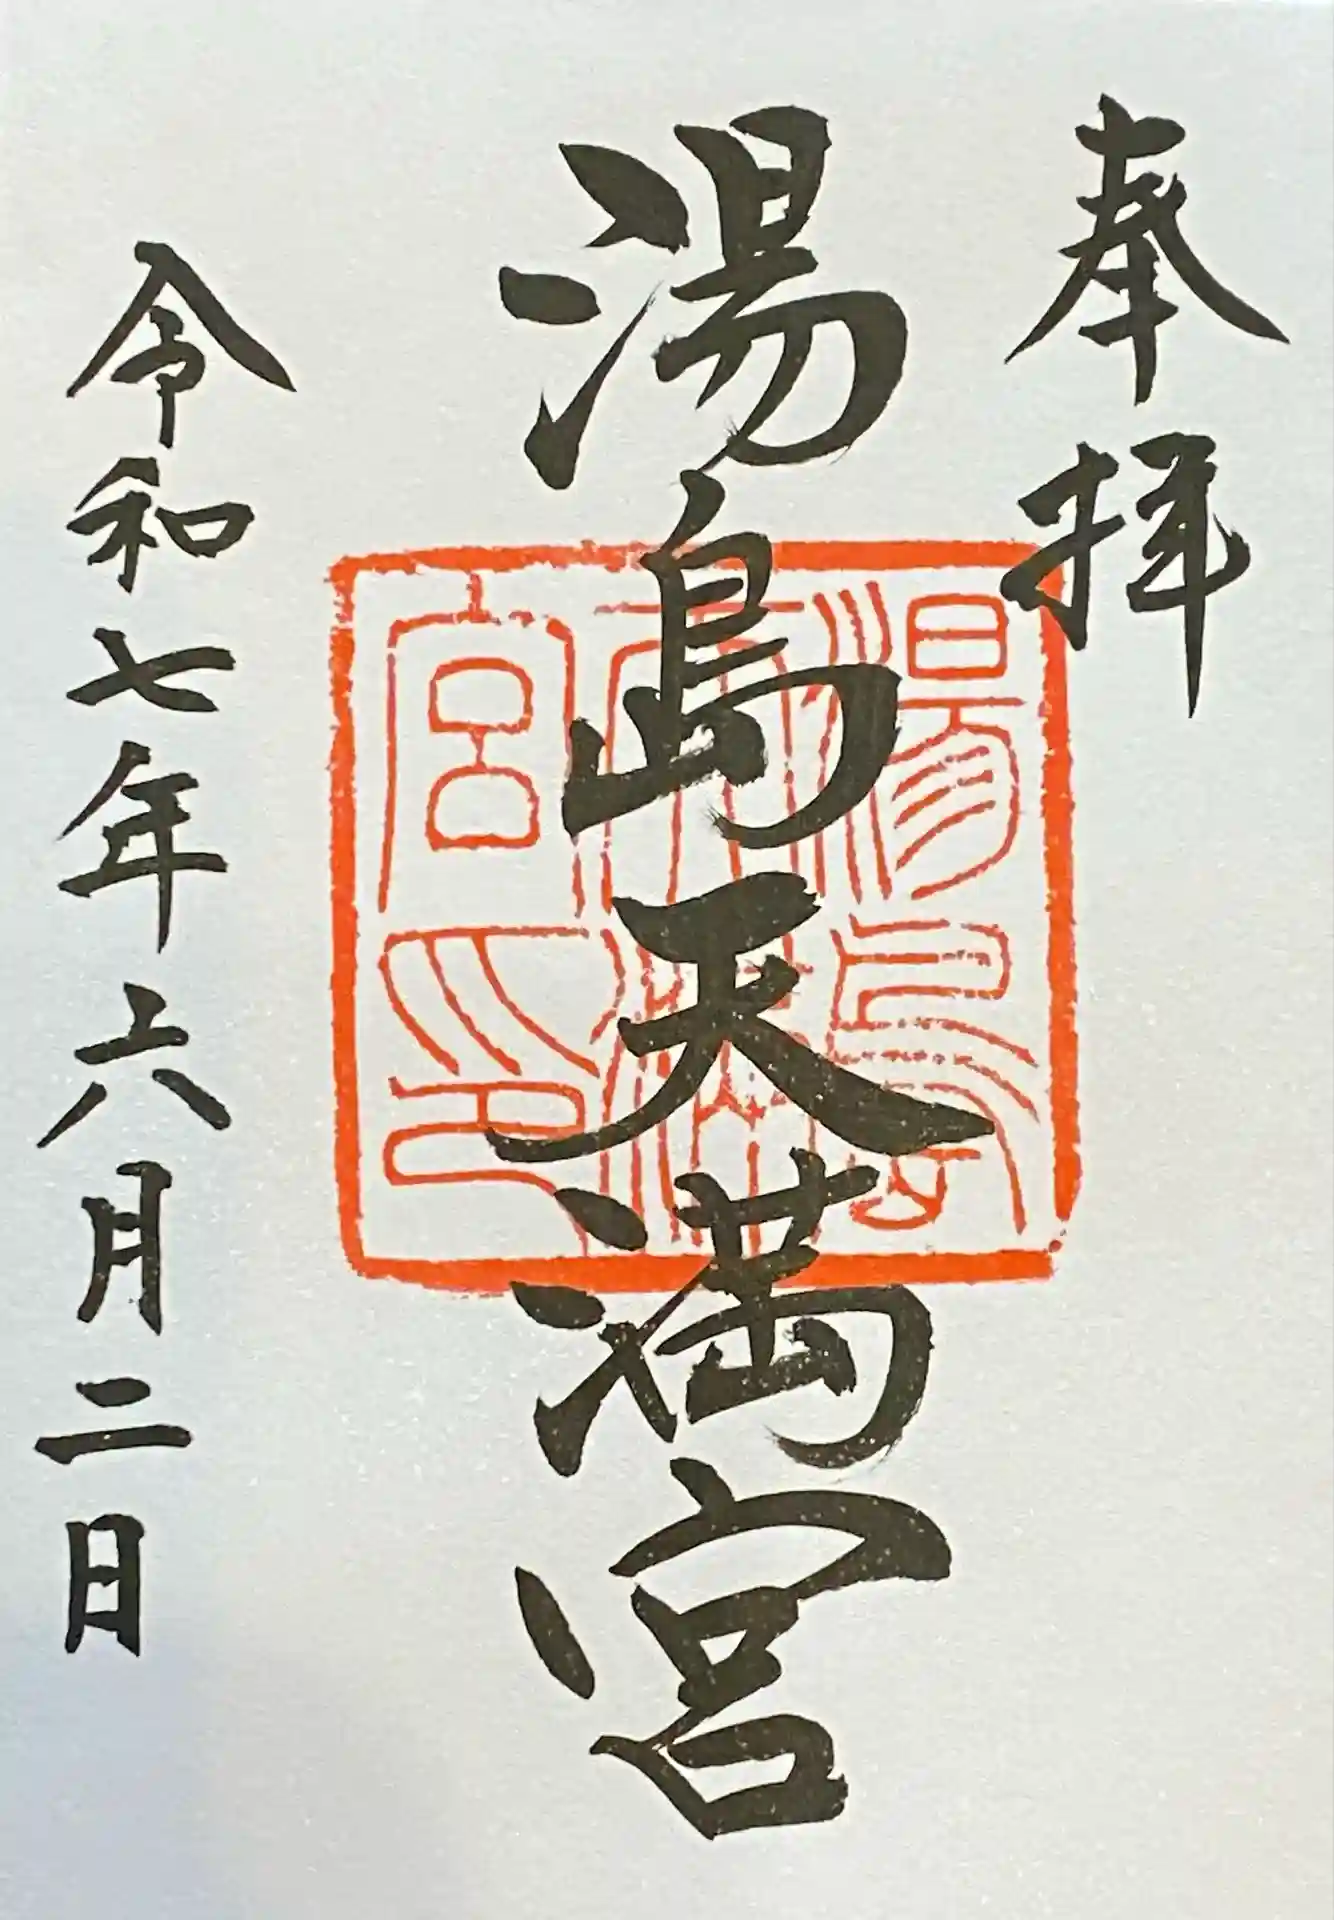 奉拝
湯島天満宮
令和七年六月二日
湯島
天神
宮印